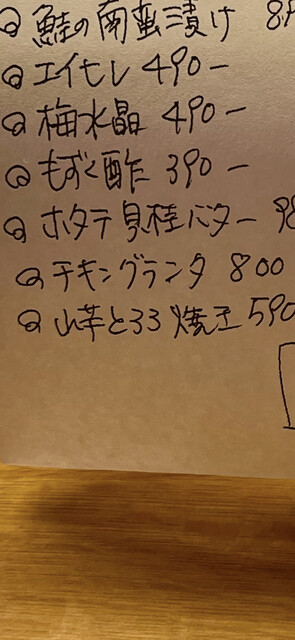 ◎ 鮭の南蛮漬け 8
◎ エイヒレ 490ー
◎ 梅水晶 490ー
◎ もずく酢 390ー
◎ ホタテ貝柱バター 98
◎ チキングランタ 800
◎ 山芋とろろ焼き 590